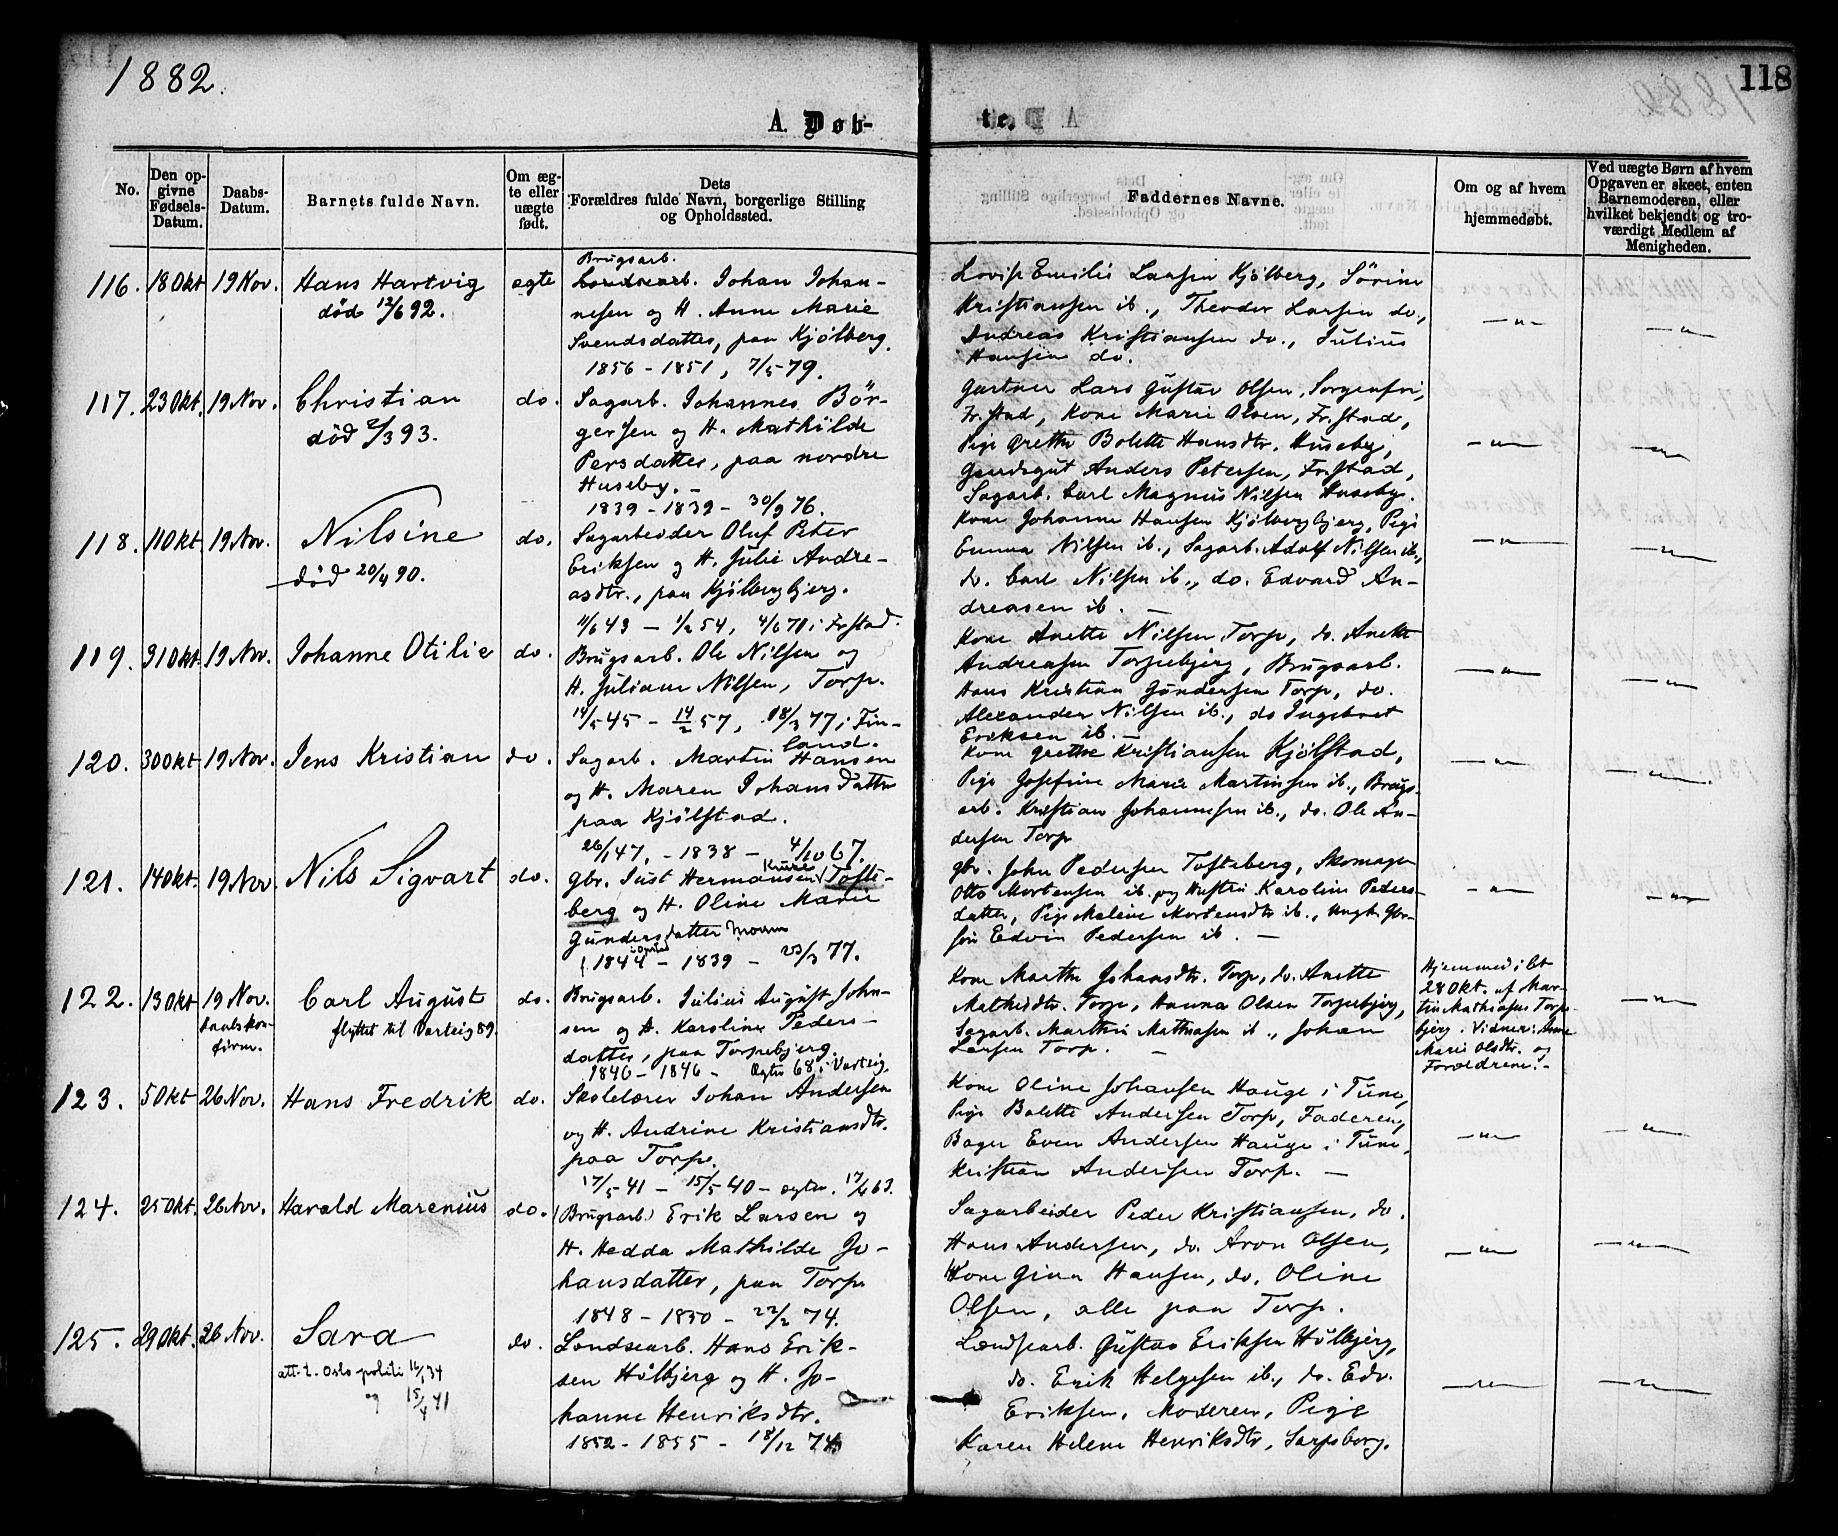 1882.
118
A. Døb-
te.
No.
Den op-
givne
Fødsels-
Datum.
Daabs-
Datum.
Barnets fulde Navn.
Om æg-
te eller
uægte
født.
Dets
Forældres fulde Navn, borgerlige Stilling
og Opholdssted.
Faddernes Navne.
Om og af hvem
hjemmedøbt.
Ved uægte Børn af hvem
Opgaven er skeet, enten
Barnemoderen, eller
hvilket bekjendt og tro-
værdigt Medlem af
Menigheden.
116. 18 Okt 19 Nov. Hans Hartvig ægte
død 12/6 92.
Brugsarb.
Londsearb. Johan Johan-
nesen og H. Anne Marie
Svendsdatter, paa Kjølberg.
1856 - 1851, 7/5 79.
Lovise Emilie Larsen Kjølberg, Sörine
Kristiansen ib., Theodor Larsen do.,
Andreas Kristiansen do., Julius
Hansen do.
117. 23 Okt. 19 Nov. Christian do.
død 2/3 93.
Sagarb. Johannes Bör-
gersen og H. Mathilde
Persdatter, paa nordre
Huseby. -
1839 - 1839 - 30/9 76.
Gartner Lars Gustav Olsen, Sorgenfri,
Fr.stad, Kone Marie Olsen, Fr.stad,
Pige Grethe Bolette Hansdtr. Huseby,
Gaardsgut Anders Petersen, Fr.stad,
Sagarb. Carl Magnus Nilsen Huseby.
118. 11 Okt 19 Nov. Nilsine do.
død 20/4 90.
Sagarbeider Oluf Peter
Eriksen og H. Julie Andre-
asdtr., paa Kjølbergbjerg.
11/6 43 - 1/2 54, 4/6 71 i Fr.stad.
Kone Johanne Hansen Kjølbergbjerg, Pige
Emma Nilsen ib., Sagarb. Adolf Nilsen ib.,
do. Carl Nilsen ib., do. Edvard An-
dreasen ib. -
119. 31 Okt. 19 Nov. Johanne Otilie do.
Brugsarb. Ole Nilsen og
H. Juliane Nilsen, Torp.
14/5 45 - 14/2 57, 18/3 77 i Fin-
land.
Kone Anette Nilsen Torp, do. Anette
Andreasen Torpebjerg, Brugsarb.
Hans Kristian Gundersen Torp, do.
Alexander Nilsen ib., do Ingebret
Eriksen ib. -
120. 30 Okt 19 Nov. Jens Kristian do.
Sagarb. Martin Hansen
og H. Maren Johansdatter
paa Kjølstad.
26/1 47. - 1838 - 4/10 67.
Kone Grethe Kristiansen Kjølstad,
Pige Josefine Marie Martinsen ib., Brugs-
arb. Kristian Johannesen ib., do. Ole An-
dersen Torp
121. 14 Okt. 19 Nov. Nils Sigvart do.
Gbr. Just Hermansen Tofte-
berg og H. Oline Marie
Gundersdatter
1844 - 1839 - 23/3 77.
Gbr. John Pedersen Tofteberg, Skomager
Otto Mortensen ib. og Hustru Karoline Peders-
datter, Pige Maline Mortensdtr ib., Ungk. Gbr-
søn Edvin Pedersen ib. -
122. 13 Okt 19 Nov. Carl August do.
Daabskon-
firm.
flyttet til Varteig 89.
Brugsarb. Julius August John-
sen og H. Karoline Peders-
datter, paa Torpebjerg.
1846 - 1846 - Ægtev. 68 i Varteig.
Kone Marthe Johansdtr. Torp, do. Anette
Mathisdtr. Torp, Hanna Olsen Torpebjerg,
Sagarb. Marthin Mathiasen ib., Johan
Larsen Torp. -
Hjemmedöbt
28 Okt. af Mar-
tin Mathiasen Torpe-
bjerg. Vidner: Anne
Marie Olsdtr. og
Forældrene. -
123. 5 Okt 26 Nov. Hans Fredrik do.
Skolelærer Johan Andersen
og H. Andrine Kristiansdtr.
paa Torp.
17/5 41 - 15/5 40 - ægtev. 17/4 63.
Kone Oline Johansen Hauge i Tune,
Pige Bolette Andersen Torp, Faderen,
Bager Even Andersen Hauge i Tune,
Kristian Andersen Torp. -
124. 25 Okt. 26 Nov. Harald Marenius do.
(Brugsarb.) Erik Larsen og
H. Hedda Mathilde Jo-
hansdatter, paa Torp
1848 - 1850 - 22/2 74.
Sagarbeider Peder Kristiansen, do.
Hans Andersen, do. Aron Olsen,
Kone Gina Hansen, do. Oline
Olsen, alle paa Torp.
125. 29 Okt. 26 Nov. Sara do.
att. t. Oslo politi 16/1 34
og 15/4 41
Londsearb. Hans Erik-
sen Hølbjerg og H. Jo-
hanne Henriksdtr.
1852 - 1855 - 18/12 74
Lændsearb. Gustav Eriksen Hølbjerg,
do. Erik Helgesen ib., do. Edv.
Eriksen, Moderen, Pige
Karen Helene Henriksdtr, Sarpsborg.